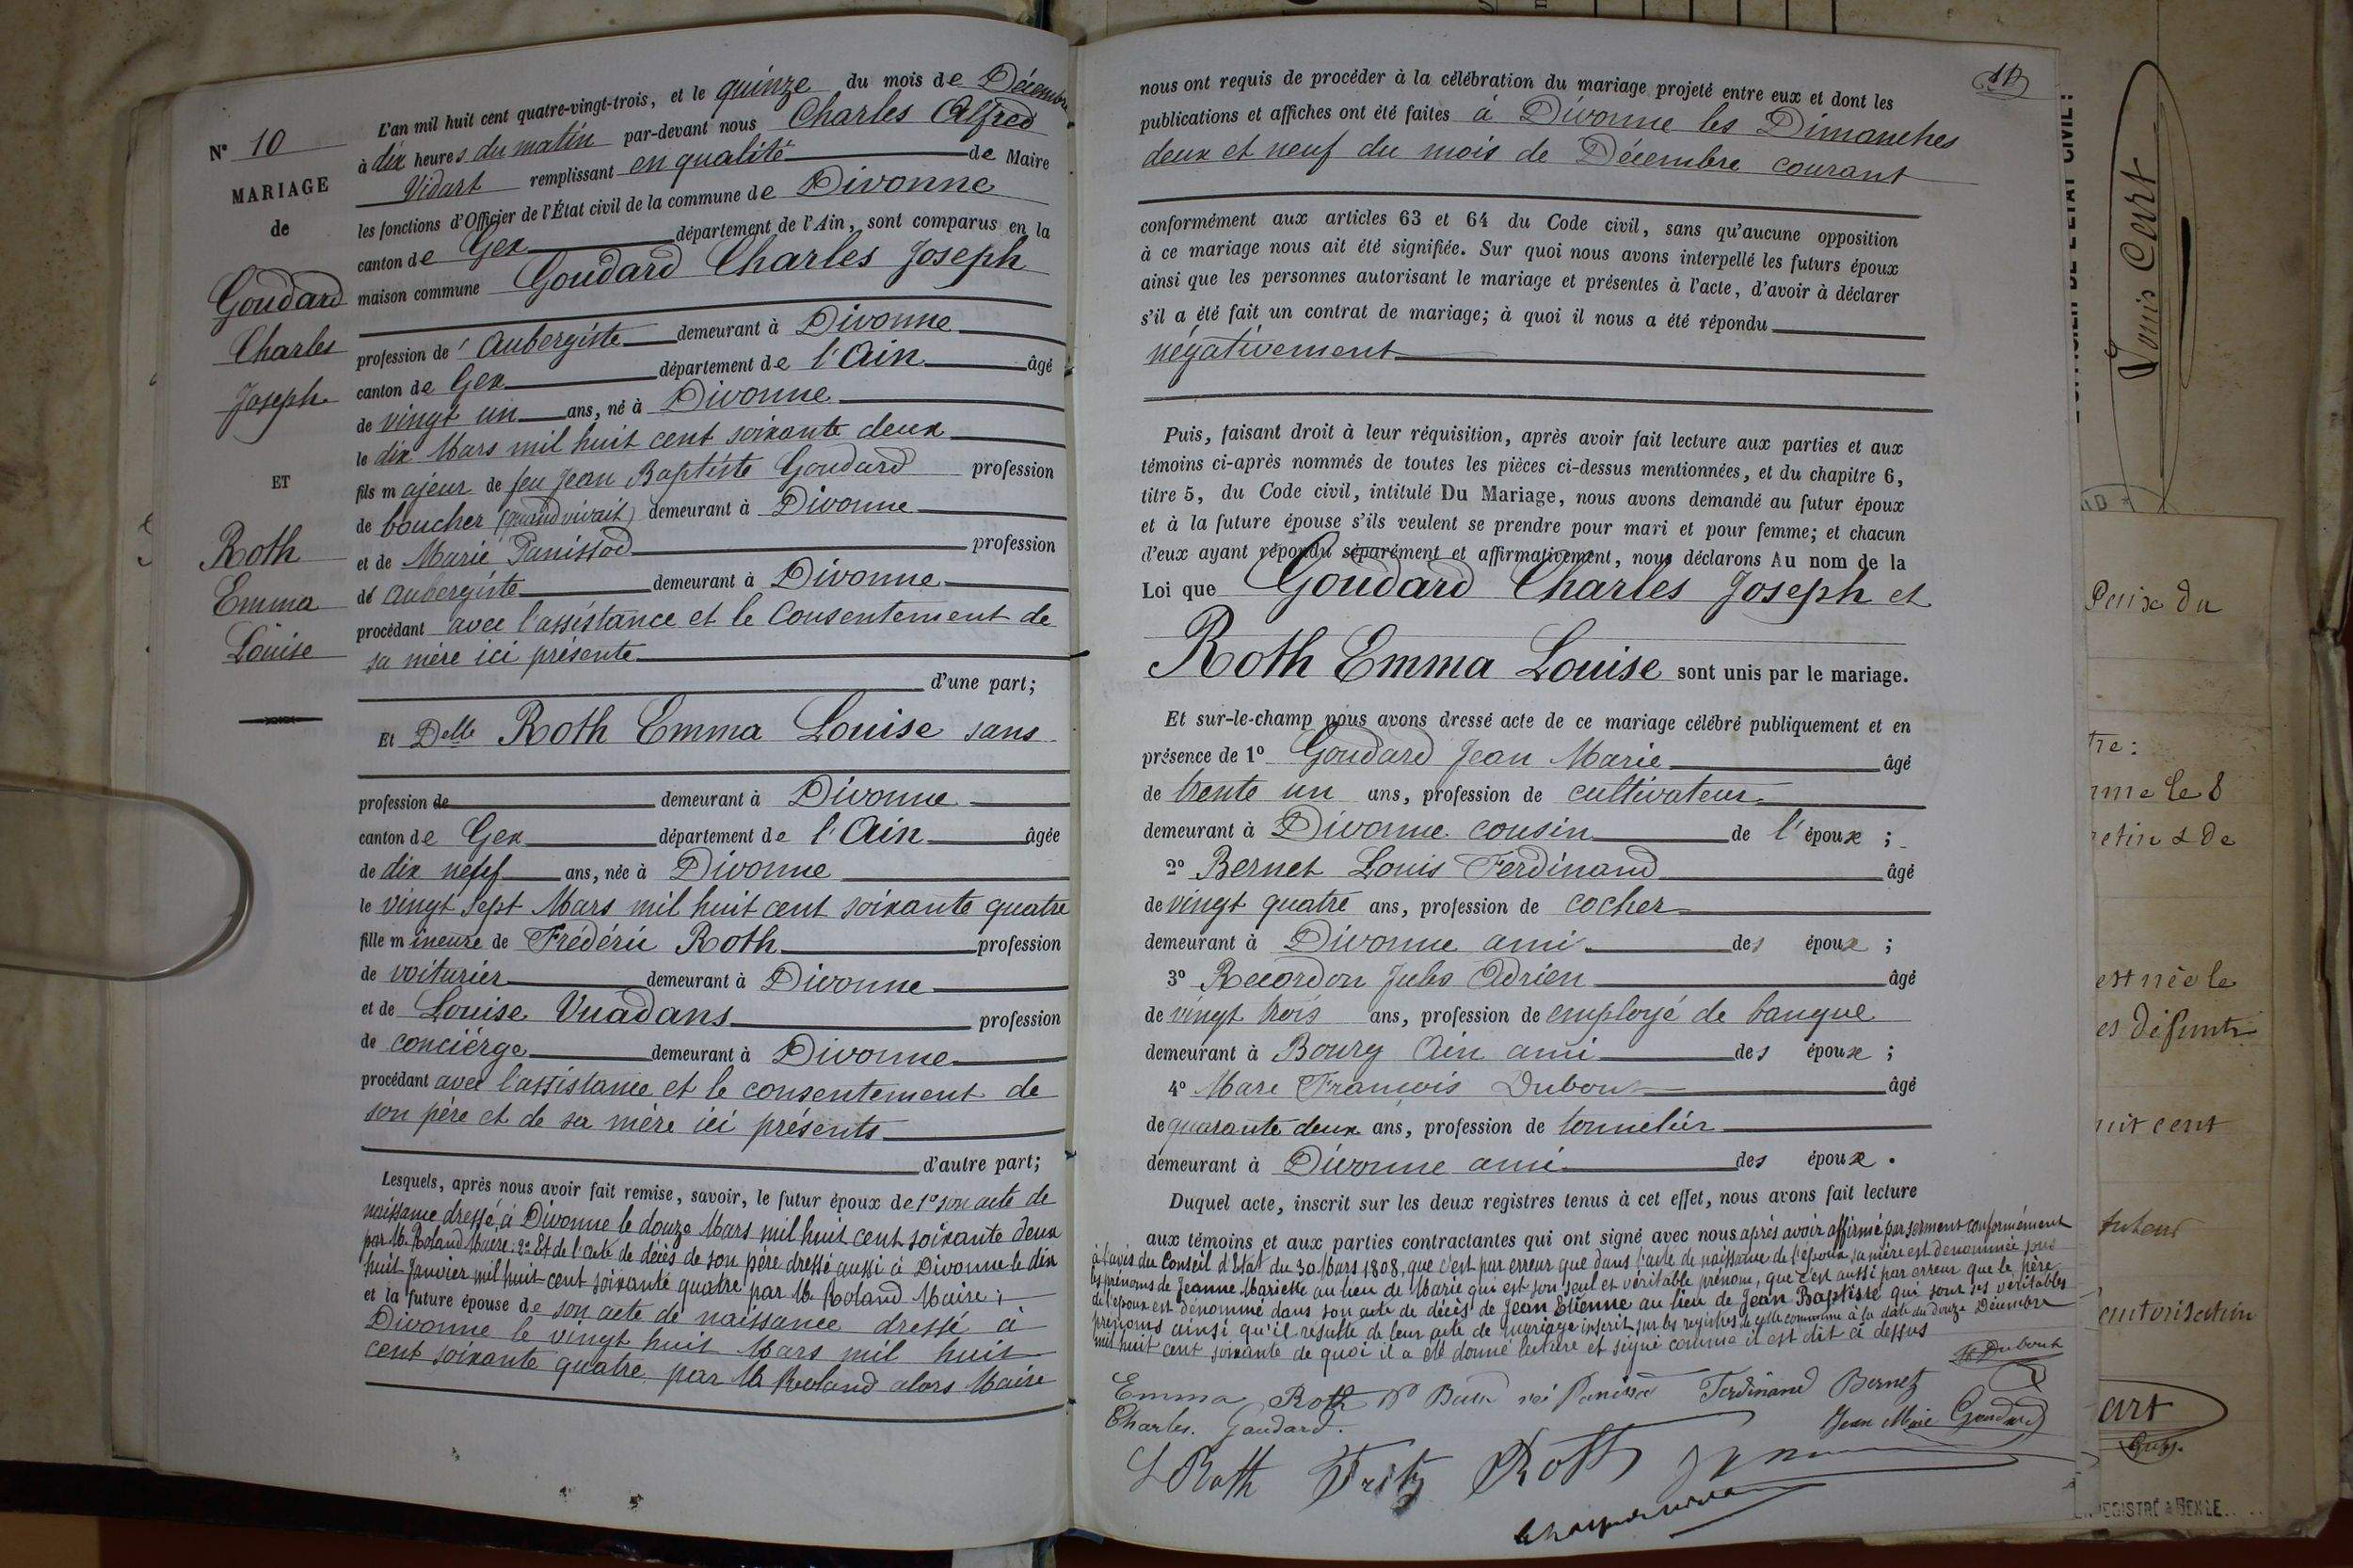 N° 10
MARIAGE
de
Goudard
Charles
Joseph
ET
Roth
Emma
Louise
L'an mil huit cent quatre-vingt-trois, et le quinze du mois de Décembre
à dix heures du matin par-devant nous Charles Alfred
Vidart remplissant en qualité de Maire
les fonctions d'Officier de l'État civil de la commune de Divonne
canton de Gex département de l'Ain, sont comparus en la
maison commune Goudard Charles Joseph
profession de Aubergiste demeurant à Divonne
canton de Gex département de l'Ain âgé
de vingt un ans, né à Divonne
le dix Mars mil huit cent soixante deux
fils majeur de feu Jean Baptiste Goudard profession
de boucher (quand vivait) demeurant à Divonne
et de Marie Panissod profession
de aubergiste demeurant à Divonne
procédant avec l'assistance et le Consentement de
sa mère ici présente
d'une part;
Et Delle Roth Emma Louise sans
profession de demeurant à Divonne
canton de Gex département de l'Ain âgée
de dix neuf ans, née à Divonne
le vingt sept Mars mil huit cent soixante quatre
fille mineure de Frédéric Roth profession
de voiturier demeurant à Divonne
et de Louise Vuadans profession
de concièrge demeurant à Divonne
procédant avec l'assistance et le consentement de
son père et de sa mère ici présents
d'autre part;
Lesquels, après nous avoir fait remise, savoir, le futur époux de 1° son acte de
naissance dressé à Divonne le douze Mars mil huit cent soixante deux
par M. Roland Maire. 2° Et de l'acte de décès de son père dressé aussi à Divonne le dix
huit Janvier mil huit cent soixante quatre par M. Roland Maire;
et la future épouse de son acte de naissance dressé à
Divonne le vingt huit Mars mil huit
cent soixante quatre par M. Roland alors Maire
nous ont requis de procéder à la célébration du mariage projeté entre eux et dont les
publications et affiches ont été faites à Divonne les Dimanches
deux et neuf du mois de Décembre courant
conformément aux articles 63 et 64 du Code civil, sans qu'aucune opposition
à ce mariage nous ait été signifiée. Sur quoi nous avons interpellé les futurs époux
ainsi que les personnes autorisant le mariage et présentes à l'acte, d'avoir à déclarer
s'il a été fait un contrat de mariage; à quoi il nous a été répondu
négativement
Puis, faisant droit à leur réquisition, après avoir fait lecture aux parties et aux
témoins ci-après nommés de toutes les pièces ci-dessus mentionnées, et du chapitre 6,
titre 5, du Code civil, intitulé Du Mariage, nous avons demandé au futur époux
et à la future épouse s'ils veulent se prendre pour mari et pour femme; et chacun
d'eux ayant répondu séparément et affirmativement, nous déclarons Au nom de la
Loi que Goudard Charles Joseph et
Roth Emma Louise sont unis par le mariage.
Et sur-le-champ nous avons dressé acte de ce mariage célébré publiquement et en
présence de 1° Goudard Jean Marie âgé
de trente un ans, profession de cultivateur
demeurant à Divonne cousin de l'époux ;
2° Bernet Louis Ferdinand âgé
de vingt quatre ans, profession de cocher
demeurant à Divonne ami des époux ;
3° Recordon Jules Adrien âgé
de vingt trois ans, profession de employé de banque
demeurant à Bourg Ain ami des époux ;
4° Marc François Dubout âgé
de quarante deux ans, profession de tonnelier
demeurant à Divonne ami des époux.
Duquel acte, inscrit sur les deux registres tenus à cet effet, nous avons fait lecture
aux témoins et aux parties contractantes qui ont signé avec nous après avoir affirmé par serment conformément
à l'avis du Conseil d'Etat du 30 Mars 1808, que c'est par erreur que dans l'acte de naissance de l'époux, sa mère est dénommée sous
les prénoms de Jeanne Mariette au lieu de Marie qui est son seul et véritable prénom, que c'est aussi par erreur que le père
de l'époux est dénommé dans son acte de décès de Jean Etienne au lieu de Jean Baptiste qui sont ses véritables
prénoms ainsi qu'il résulte de leur acte de mariage inscrit sur les registres de cette commune à la date du douze Décembre
mil huit cent soixante de quoi il a été donné lecture et signé comme il est dit ci dessus
Emma Roth née Panissod Ferdinand Bernet Dubout
Charles. Goudard. Jean Marie Goudard
L Roth Fritz Roth
Louis Curt
Paix du
est née le
défunts
uit cent
autorisation
art